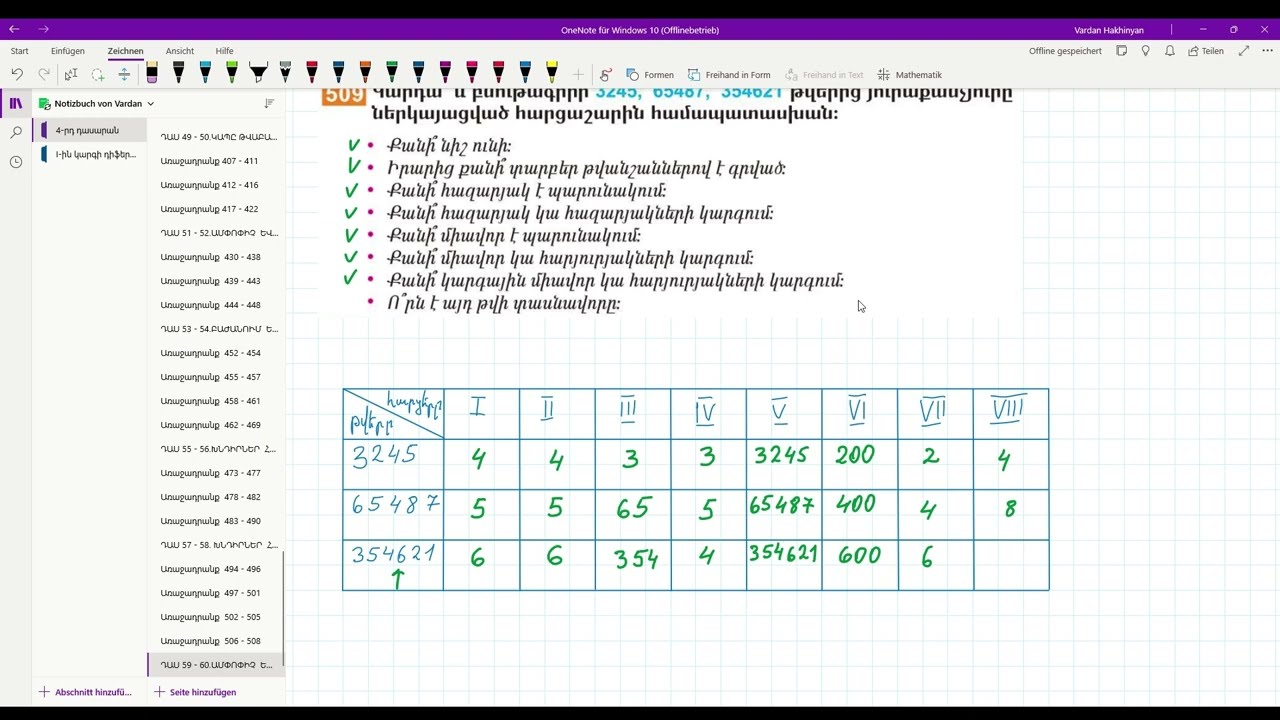 OneNote für Windows 10 (Offlinebetrieb)
Vardan Hakhinyan
Start Einfügen Zeichnen Ansicht Hilfe
Offline gespeichert Teilen
Formen Freihand in Form Freihand in Text Mathematik
Notizbuch von Vardan
4-րդ դասարան
I-ին կարգի դիֆեր...
ԴԱՍ 49 - 50.ԿԱՊԸ ԹՎԱԲԱ...
Առաջադրանք 407 - 411
Առաջադրանք 412 - 416
Առաջադրանք 417 - 422
ԴԱՍ 51 - 52.ԱՄՓՈՓԻՉ ԵՎ...
Առաջադրանք 430 - 438
Առաջադրանք 439 - 443
Առաջադրանք 444 - 448
ԴԱՍ 53 - 54.ԲԱԺԱՆՈՒՄ Ե...
Առաջադրանք 452 - 454
Առաջադրանք 455 - 457
Առաջադրանք 458 - 461
Առաջադրանք 462 - 469
ԴԱՍ 55 - 56.ԽՆԴԻՐՆԵՐ Հ...
Առաջադրանք 473 - 477
Առաջադրանք 478 - 482
Առաջադրանք 483 - 490
ԴԱՍ 57 - 58. ԽՆԴԻՐՆԵՐ Հ...
Առաջադրանք 494 - 496
Առաջադրանք 497 - 501
Առաջադրանք 502 - 505
Առաջադրանք 506 - 508
ԴԱՍ 59 - 60.ԱՄՓՈՓԻՉ Ե...
Abschnitt hinzufü... Seite hinzufügen
509 Կարդա՛ և բնութագրի՛ր 3245, 65487, 354621 թվերից յուրաքանչյուրը
ներկայացված հարցաշարին համապատասխան:
Քանի՞ նիշ ունի:
Իրարից քանի՞ տարբեր թվանշաններով է գրված:
Քանի՞ հազարյակ է պարունակում:
Քանի՞ հազարյակ կա հազարյակների կարգում:
Քանի՞ միավոր է պարունակում:
Քանի՞ միավոր կա հարյուրյակների կարգում:
Քանի՞ կարգային միավոր կա հարյուրյակների կարգում:
Ո՞րն է այդ թվի տասնավորը:
հարցերը թվերը I II III IV V VI VII VIII
3245 4 4 3 3 3245 200 2 4
65487 5 5 65 5 65487 400 4 8
354621 6 6 354 4 354621 600 6